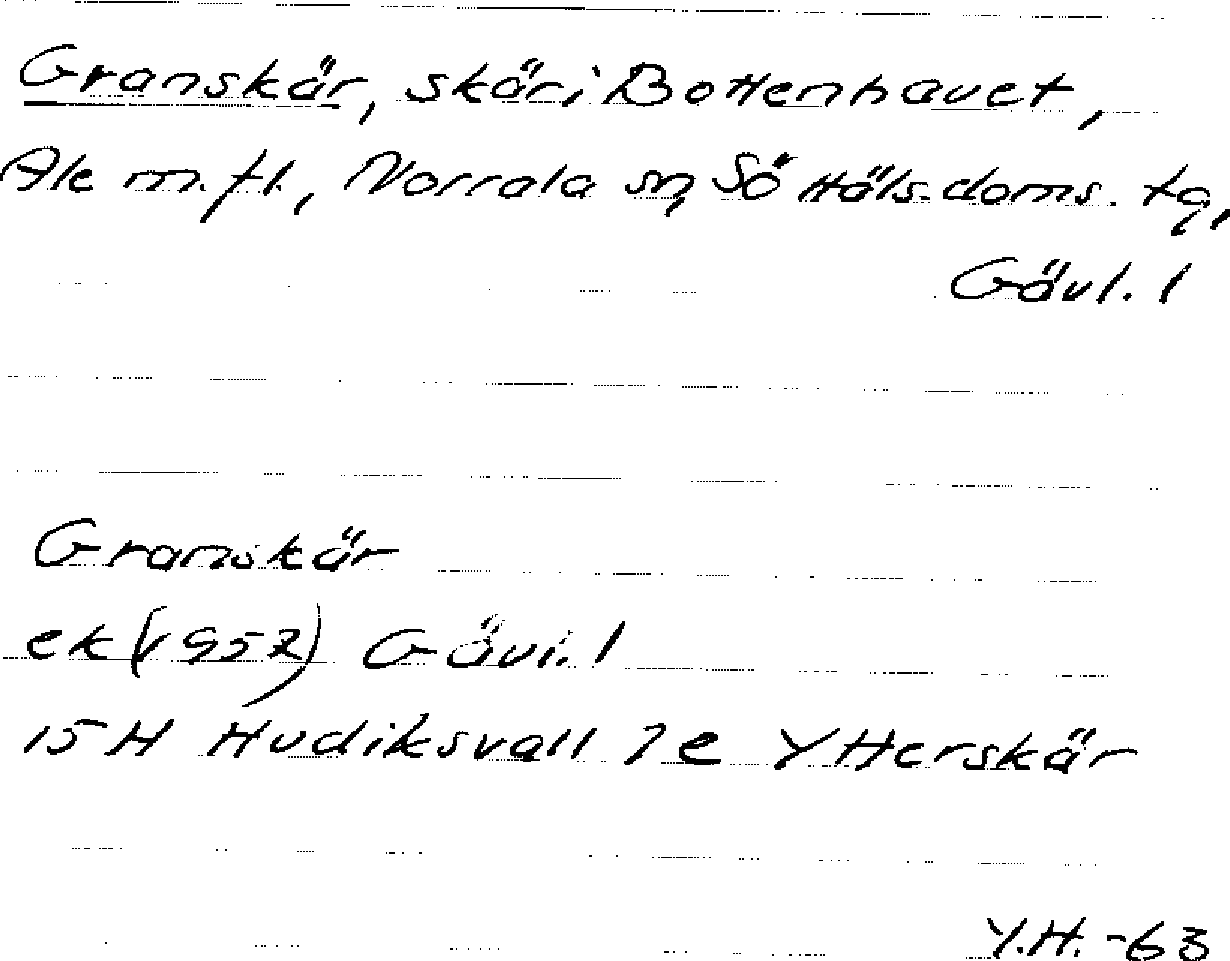 Granskär, skär i Bottenhavet,
Ale m.fl., Norrala sn, Sö Häls. doms. tg,
Gävl. l
Granskär
ek (1957) Gävl. l
15H Hudiksvall 7e Ytterskär
Y.H. -63